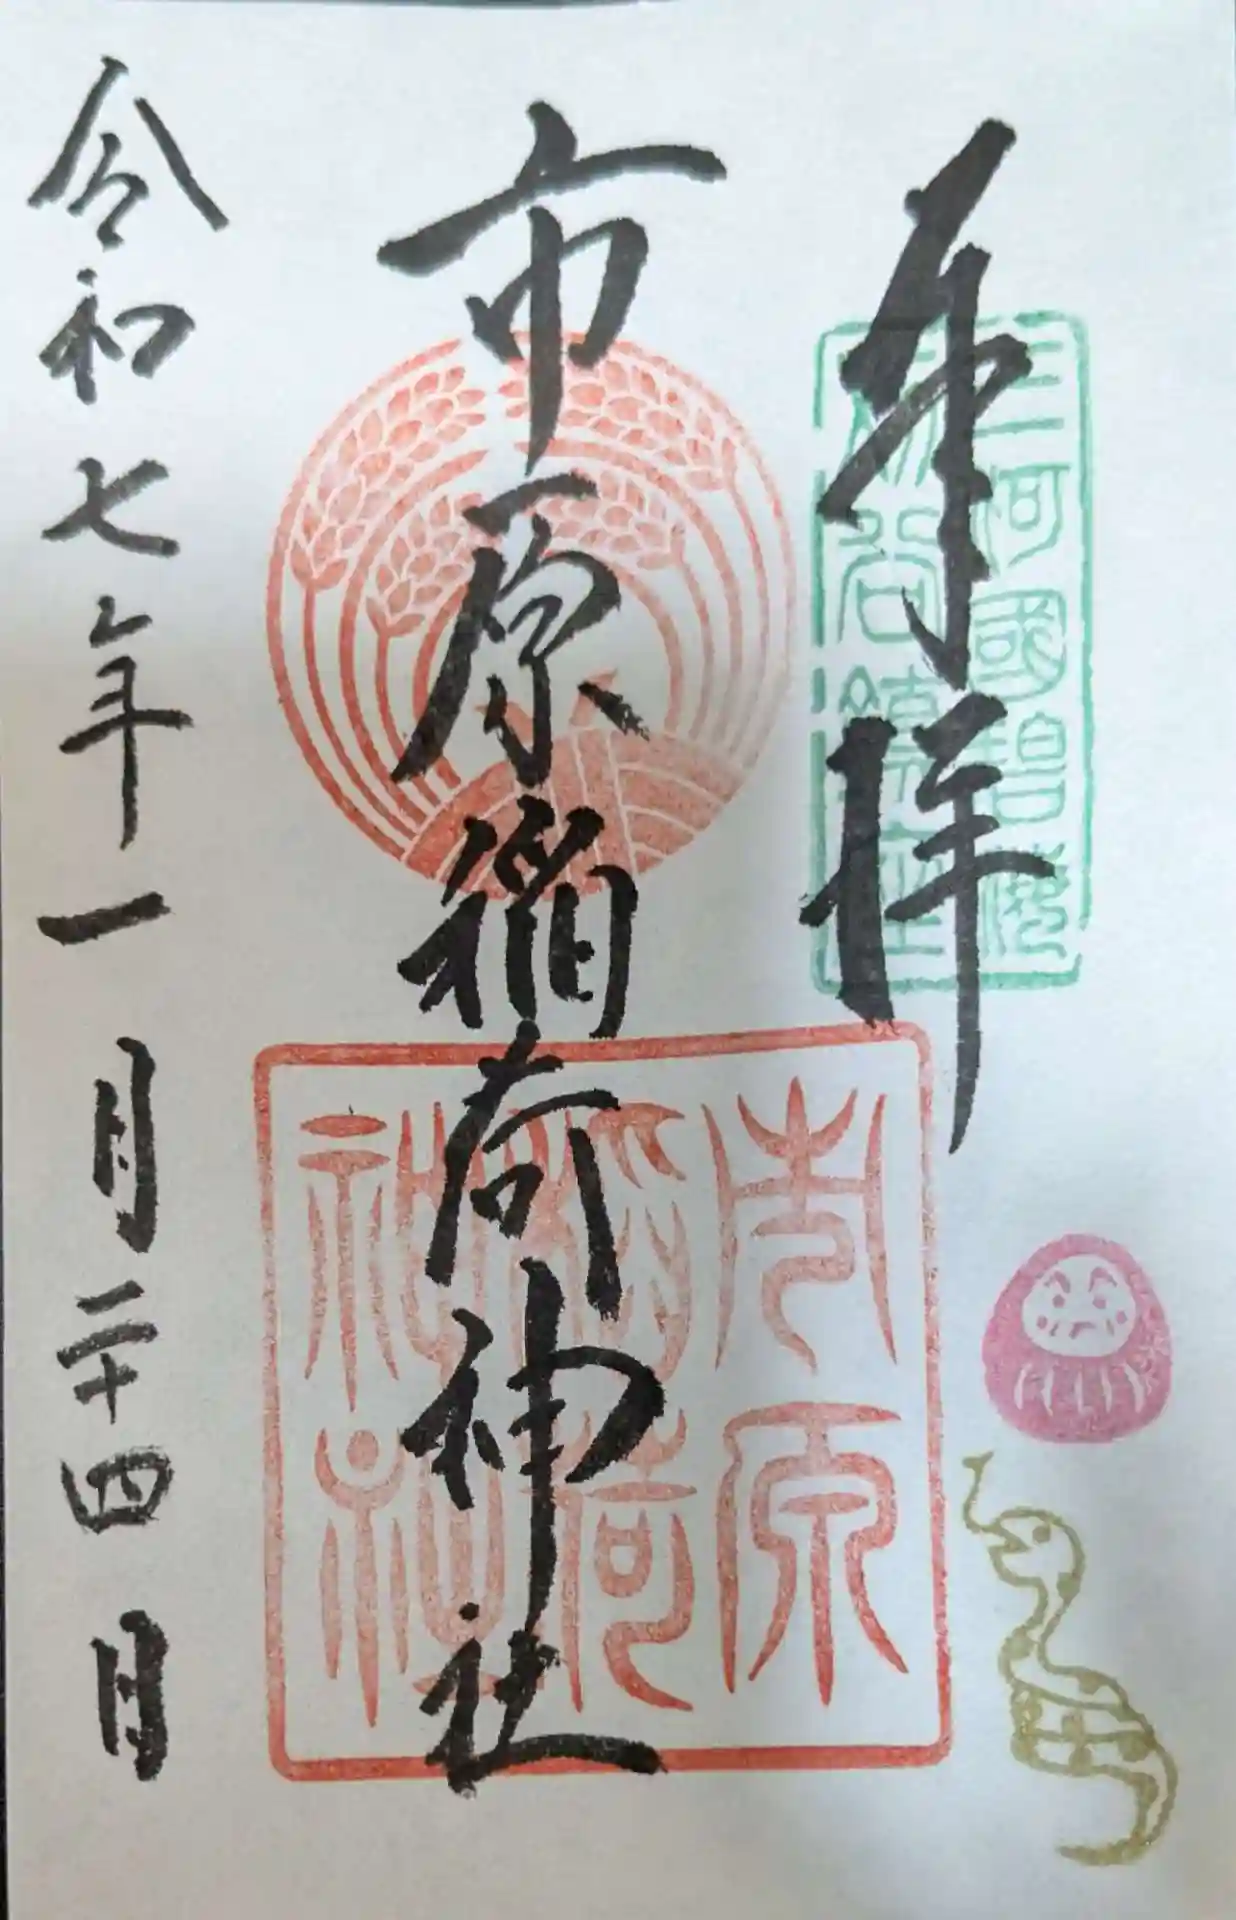 奉拝
三河國碧海
刈谷鎮座
市原稲荷神社
市原
稲荷
神社
令和七年一月二十四日